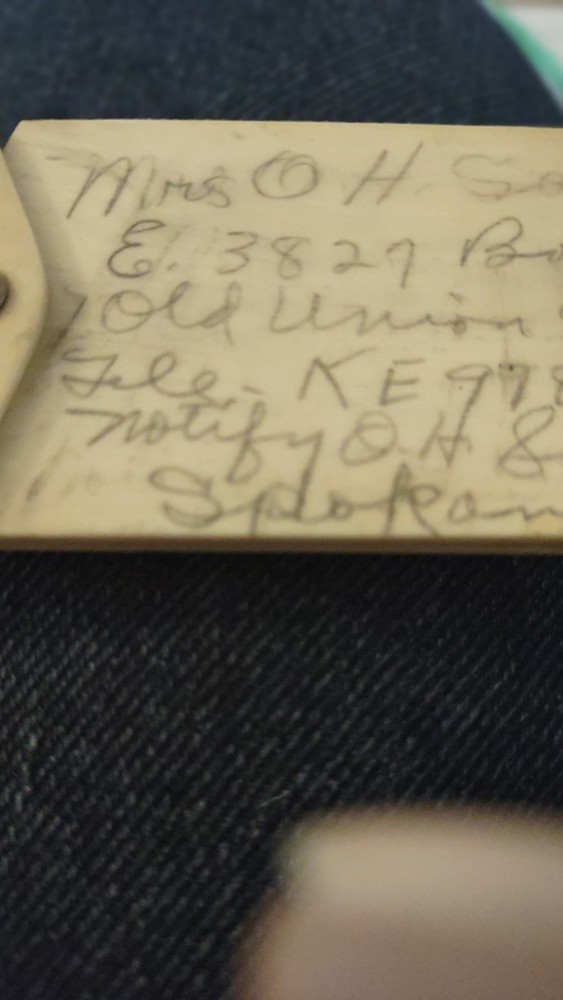 Mrs O H. So
E. 3827 Bo
Old Union
Tele.- KE 978
Notify O.H. S
Spokan